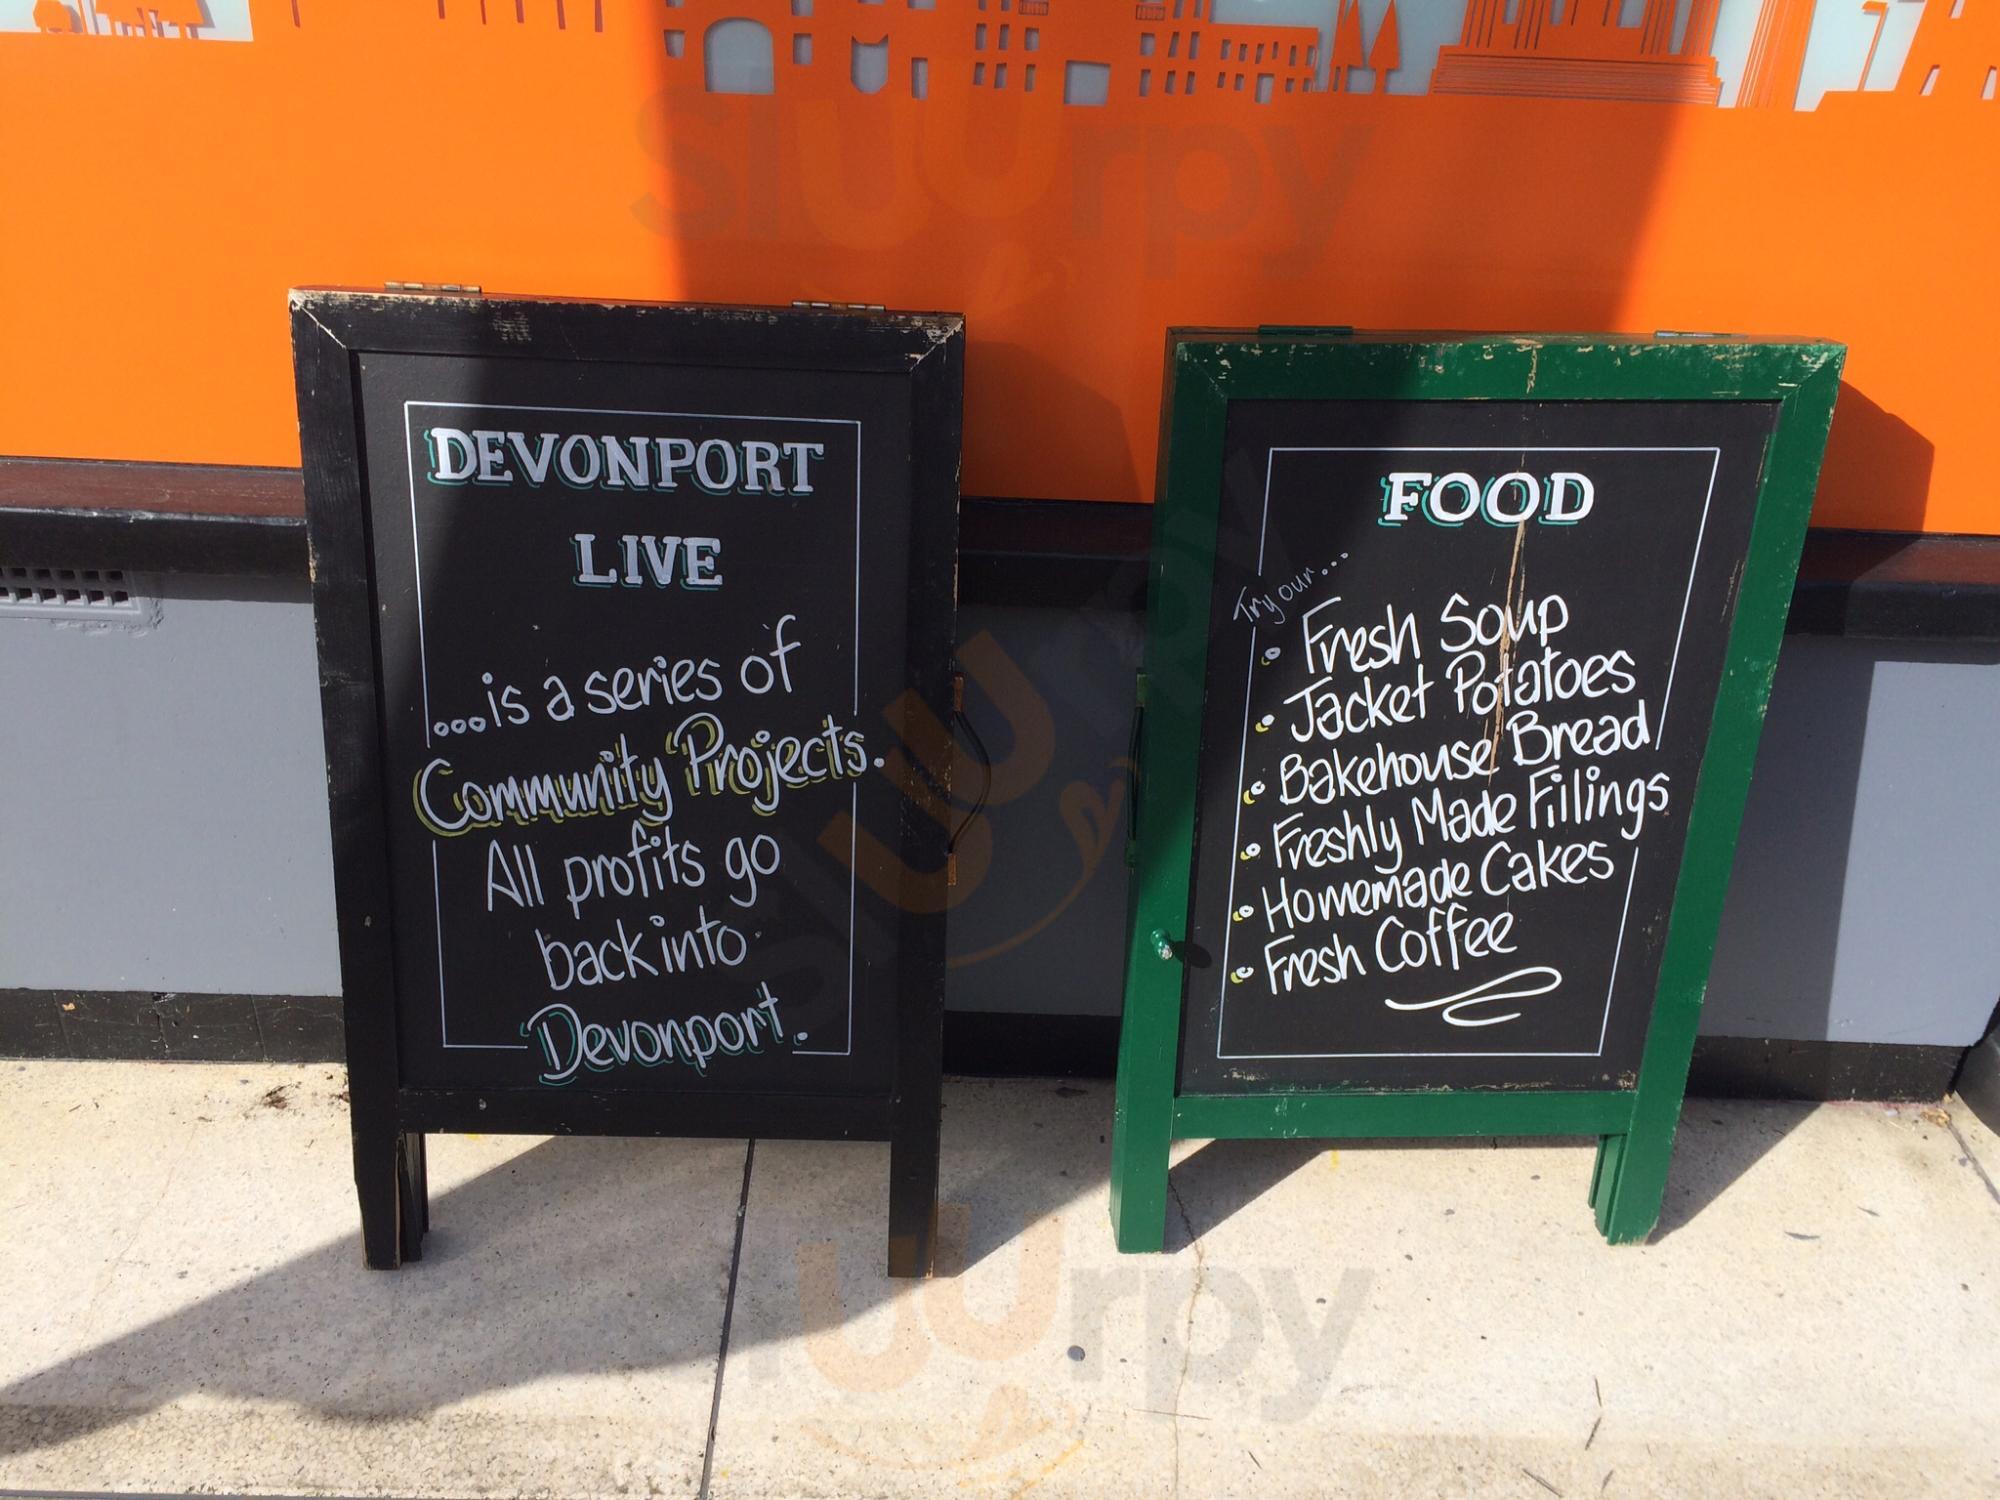 DEVONPORT
LIVE
...is a series of
Community Projects.
All profits go
back into
Devonport.
FOOD
Try our...
Fresh Soup
Jacket Potatoes
Bakehouse Bread
Freshly Made Fillings
Homemade Cakes
Fresh Coffee
sluurpy
sluurpy
sluurpy